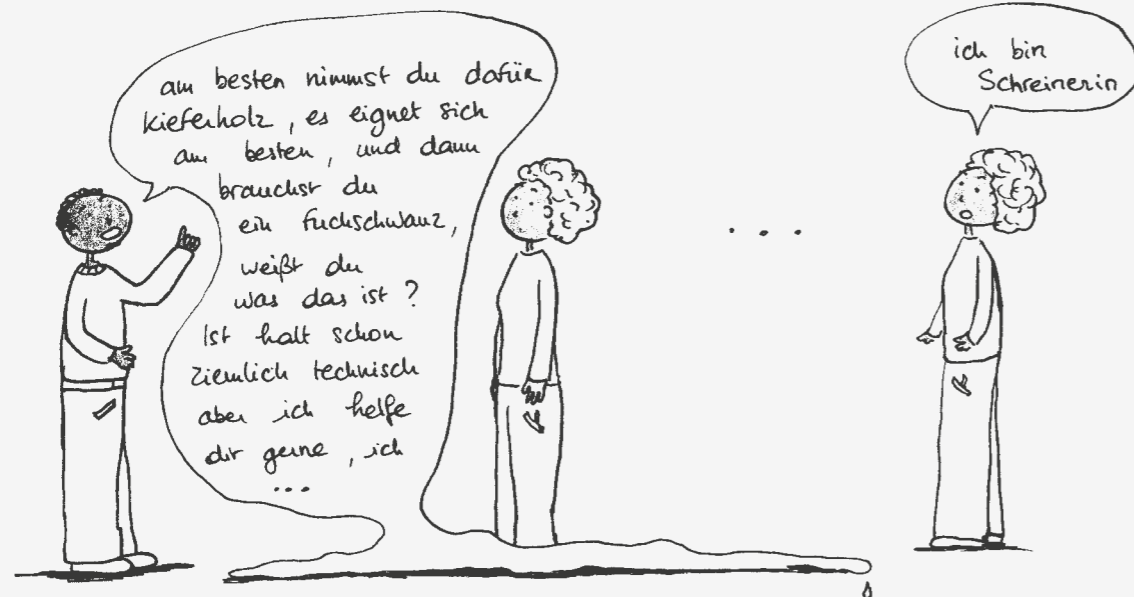 am besten nimmst du dafür
Kieferholz, es eignet sich
am besten, und dann
brauchst du
ein Fuchschwanz,
weißt du
was das ist?
Ist halt schon
ziemlich technisch
aber ich helfe
dir gerne, ich
...
...
ich bin
Schreinerin